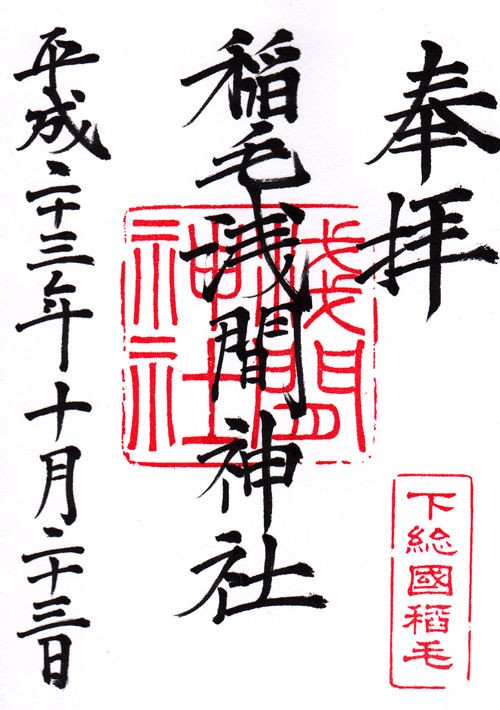 奉拝
下総國稲毛
稲毛浅間神社
浅間神社
平成二十三年十月二十三日